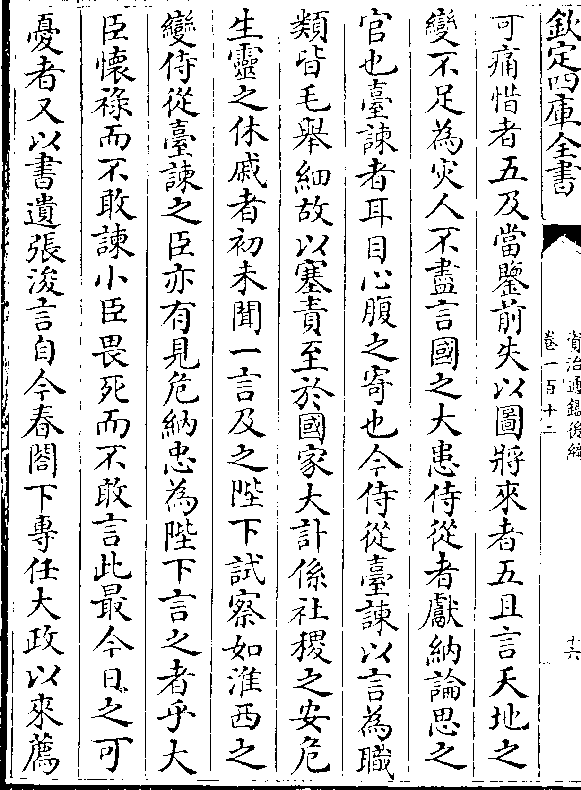 欽定四庫全書
資治通鑑後編
卷一百十二
十六
可痛惜者五及當鑒前失以圖將來者五且言天地之
變不足為災人不盡言國之大患侍從者獻納論思之
官也臺諫者耳目心腹之寄也今侍從臺諫以言為職
類皆毛舉細故以塞責至於國家大計係社稷之安危
生靈之休戚者初未聞一言及之陛下試察如淮西之
變侍從臺諫之臣亦有見危納忠為陛下言之者乎大
臣懷祿而不敢諫小臣畏死而不敢言此最今日之可
憂者又以書遺張浚言自今春閤下專任大政以來薦